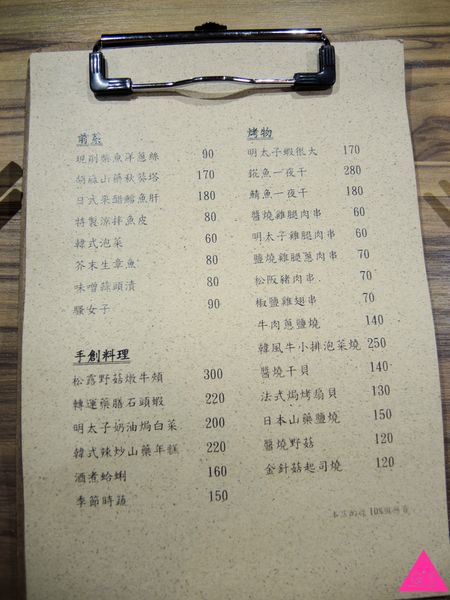 前菜
現削柴魚洋蔥絲 90
山藥秋葵塔 170
日式果醋鱈魚肝 180
特製涼拌魚皮 80
韓式泡菜 60
芥末生章魚 80
味噌蒜頭漬 80
騷女子 90
手創料理
松露野菇燉牛頰 300
轉運藥膳石頭蝦 220
明太子奶油焗白菜 200
韓式辣炒山藥年糕 220
酒煮蛤蜊 160
季節時蔬 150
烤物
明太子蝦很大 170
錵魚一夜干 280
鯖魚一夜干 180
醬燒雞腿肉串 60
明太子雞腿肉串 60
鹽燒雞腿蔥肉串 70
松阪豬肉串 70
椒鹽雞翅串 70
牛肉蔥鹽燒 140
韓風牛小排泡菜燒 250
醬燒干貝 140
法式焗烤扇貝 130
日本山藥鹽燒 150
醬燒野菇 120
金針菇起司燒 120
10%服務費